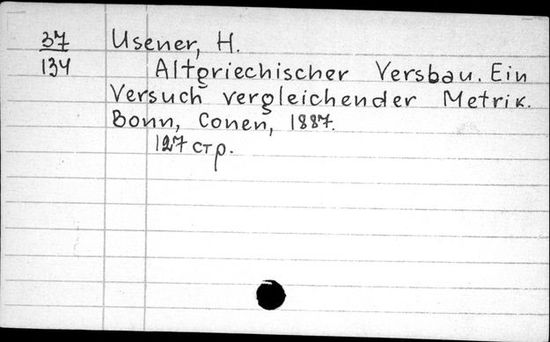 37 Usener, H.
134 Altgriechischer Versbau. Ein
Versuch vergleichender Metrik.
Bonn, Conen, 1887.
127 стр.